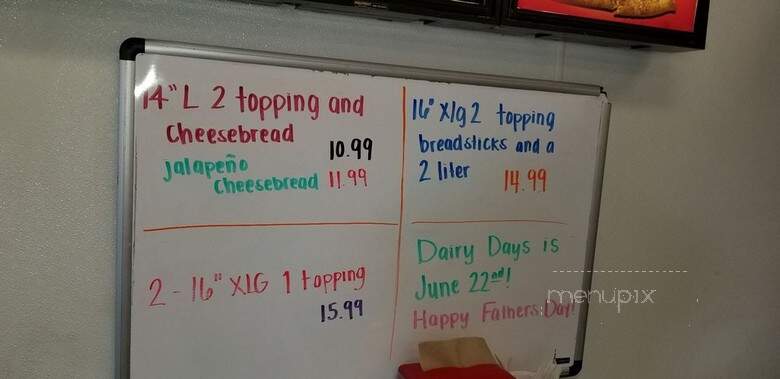 14" L 2 topping and
cheesebread
10.99
Jalapeño
cheesebread 11.99
16" Xlg 2 topping
breadsticks and a
2 liter 14.99
2 - 16" XLG 1 topping
15.99
Dairy Days is
June 22nd!
Happy Fathers Day!
menupix